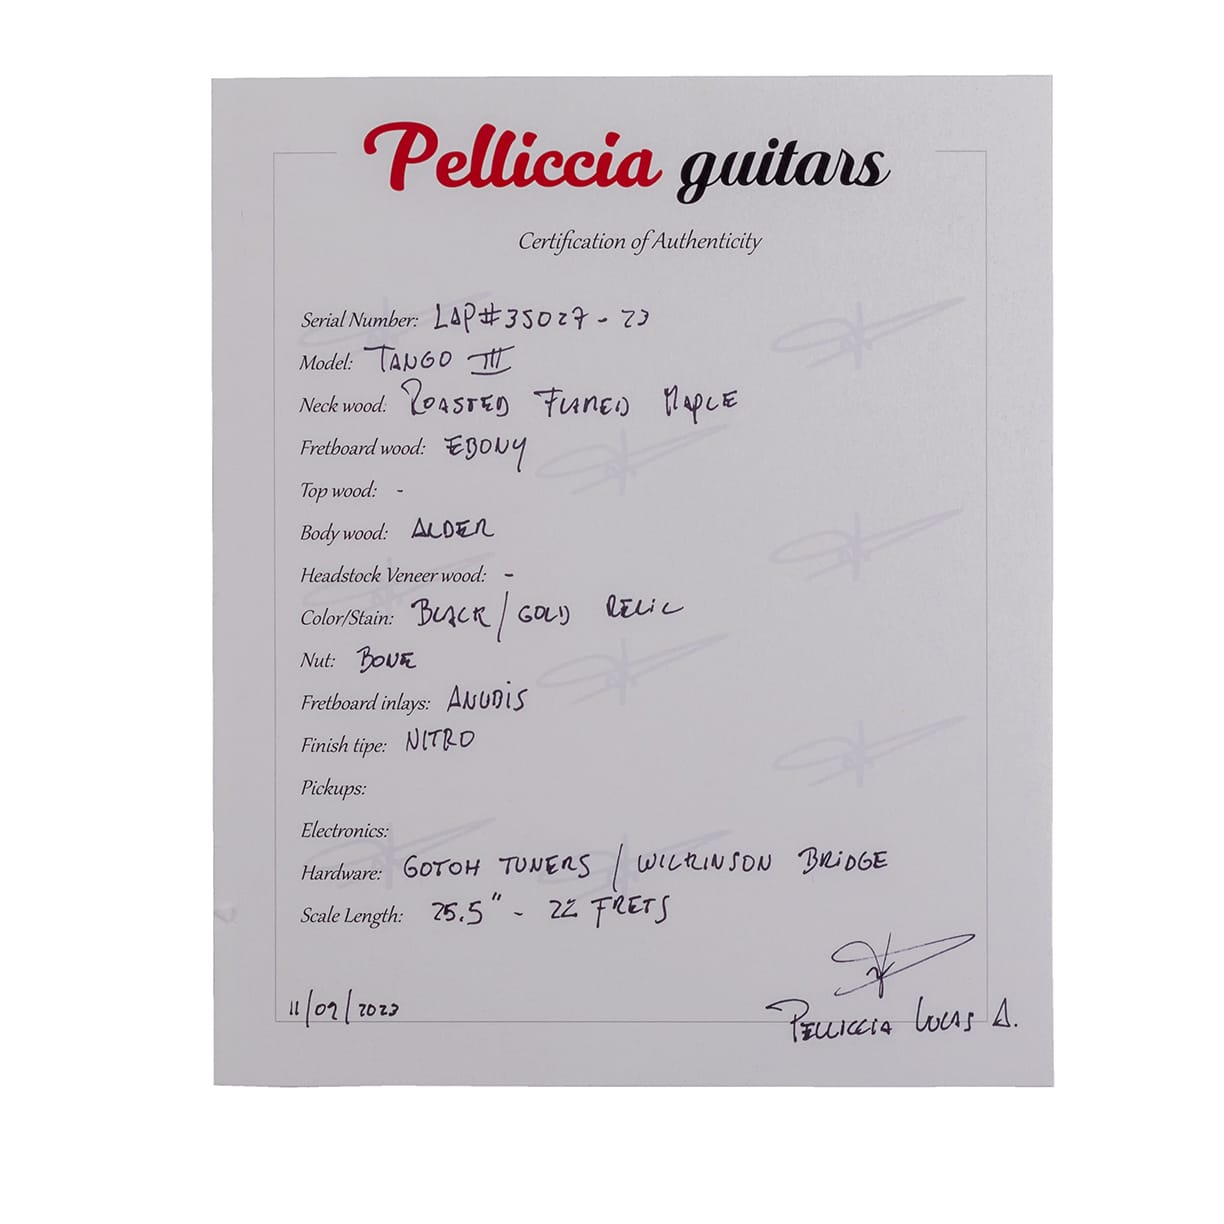 Pelliccia guitars
Certification of Authenticity
Serial Number: LAP#35027-23
Model: TANGO III
Neck wood: ROASTED FLAMED MAPLE
Fretboard wood: EBONY
Top wood: -
Body wood: ALDER
Headstock Veneer wood: -
Color/Stain: BLACK/GOLD RELIC
Nut: BONE
Fretboard inlays: ANUBIS
Finish tipe: NITRO
Pickups:
Electronics:
Hardware: GOTOH TUNERS / WILKINSON BRIDGE
Scale Length: 25.5" - 22 FRETS
11/09/2023
PELLICCIA LUCAS A.